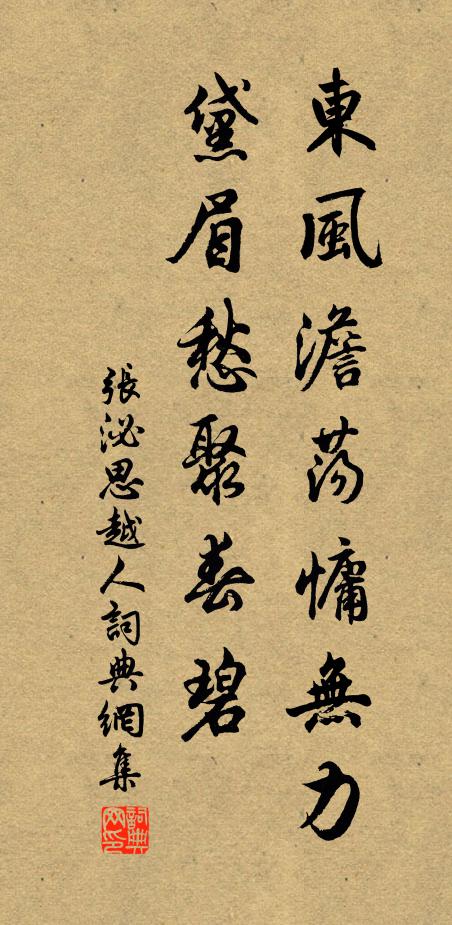 東風澹蕩慵無力
黛眉愁聚春碧
張泌思越人詞典網集
詞典网印